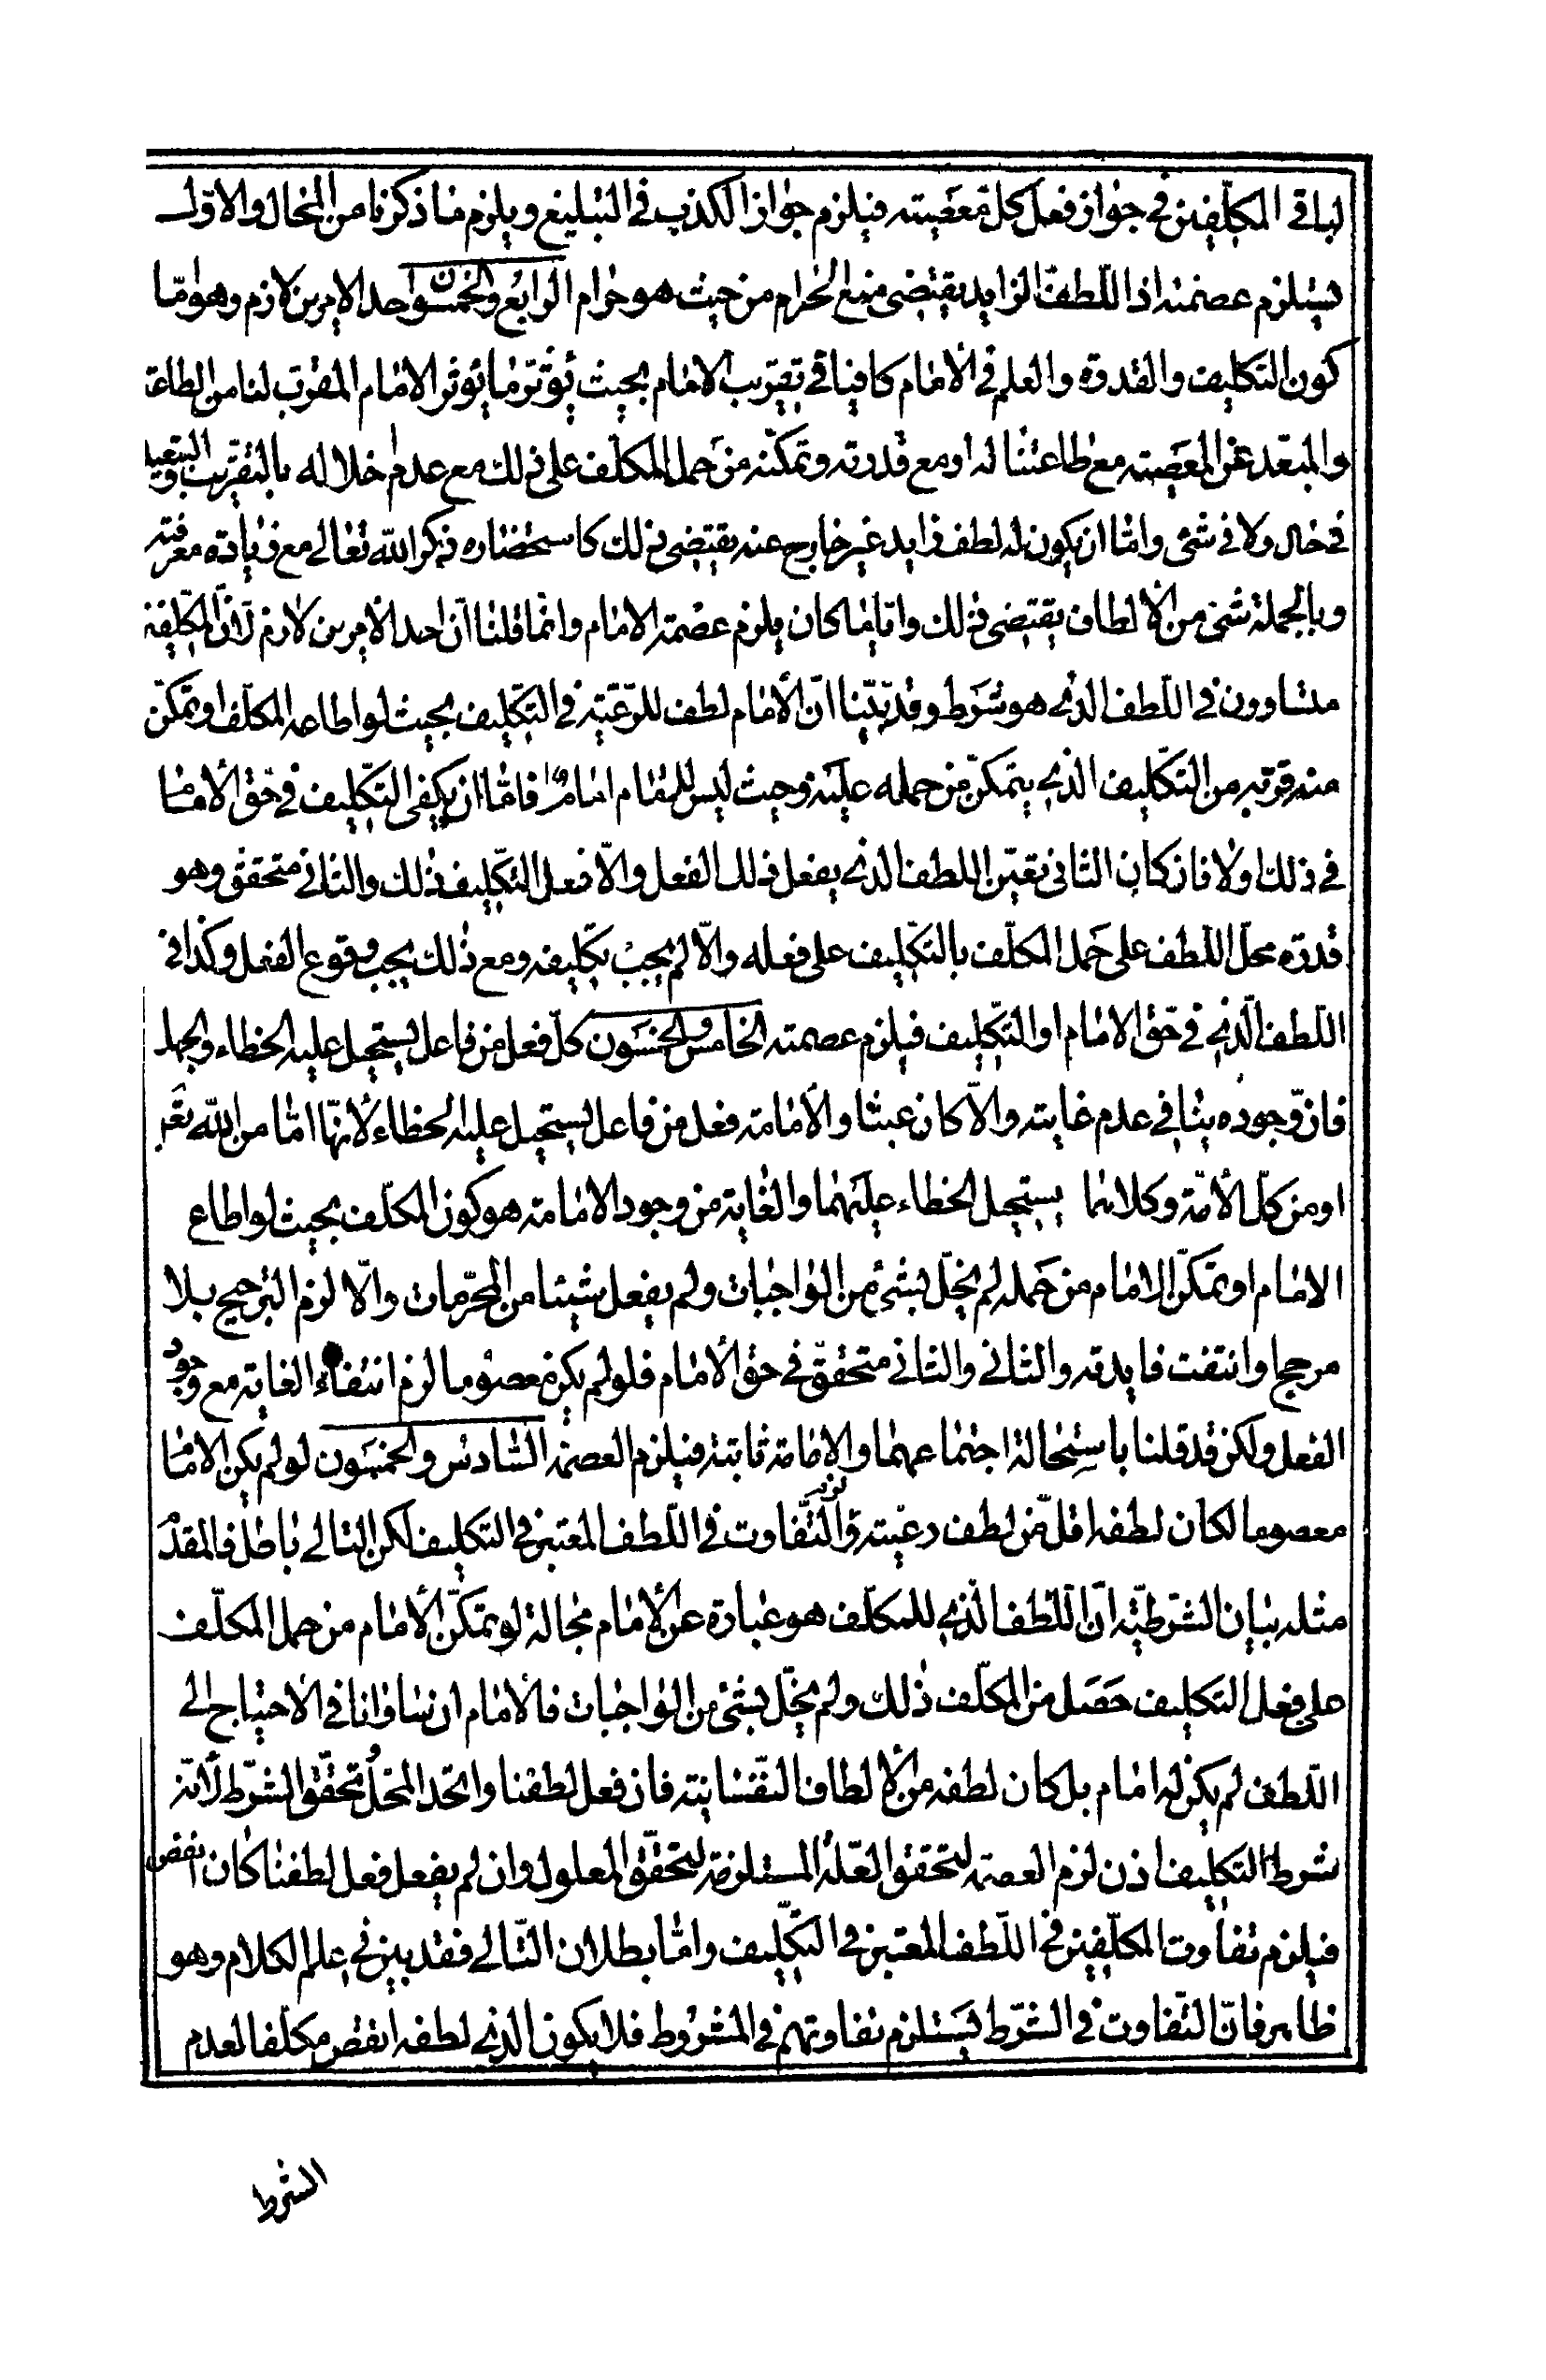 لباقي المكلّفين في جواز فعل كل معصية فيلزم جواز الكذب في التبليغ ويلزم ما ذكرنا من المحال والاول
يستلزم عصمته اذ اللّطف الزايد يقتضي منع الحرام من حيث هو حرام الرابع والخمسون احد الامرين لازم وهو امّا
كون التكليف والقدرة والعلم في الامام كافيا في تقريب الامام بحيث يؤثر ما يؤثر الامام المقرّب لنا من الطاعة
والمبعّد عن المعصية مع طاعتنا له او مع قدرته وتمكّنه من حمل المكلّف على ذلك مع عدم اخلاله بالتقريب والتبعيد
في حال ولا في شئ وامّا ان يكون له لطف زايد غير خارج عنه يقتضي ذلك كاستحضاره ذكر الله تعالى مع زيادة معرفته
وبالجملة شئ من الالطاف يقتضي ذلك وايّا ما كان يلزم عصمة الامام وانّما قلنا انّ احد الامرين لازم لانّ المكلّفين
متساوون في اللّطف الذي هو شرط وقد بيّنا انّ الامام لطف للرّعيّة في التكليف بحيث لو اطاعه المكلّف او تمكّن
منه قرّبه من التكليف الذي يتمكّن من حمله عليه وحيث ليس للامام امام فامّا ان يكفي التكليف في حق الامام
في ذلك اولا فان كان الثاني تعيّن اللطف الذي يفعل ذلك الفعل والّا فعل التكليف ذلك والثاني متحقق وهو
قدرة محلّ اللطف على حمل المكلّف بالتكليف على فعله والّا لم يجب تكليفه ومع ذلك يجب وقوع الفعل وكذا في
اللّطف الّذي في حق الامام او التكليف فيلزم عصمته الخامس والخمسون كلّ فعل من فاعل يستحيل عليه الخطاء والجهل
فانّ وجوده ينافي عدم غايته والّا كان عبثا والامامة فعل من فاعل يستحيل عليه الخطاء لانّها امّا من الله تعالى
او من كلّ الامّة وكلاهما يستحيل الخطاء عليهما والغاية من وجود الامامة هو كون المكلّف بحيث لو اطاع
الامام او تمكّن الامام من حمله لم يخلّ بشئ من الواجبات ولم يفعل شيئا من المحرّمات والّا لزم الترجيح بلا
مرجح او انتفت فايدته والثاني والثاني متحقّق في حق الامام فلو لم يكن معصوما لزم انتفاء الغاية مع وجود
الفعل ولكن قد قلنا باستحالة اجتماعهما والامامة ثابتة فيلزم العصمة السّادس والخمسون لو لم يكن الامام
معصوما لكان لطفه اقلّ من لطف رعيّته ولزم التّفاوت في اللّطف المعتبر في التكليف لكن التالي باطل فالمقدّم
مثله بيان الشرطيّة انّ اللّطف الّذي للمكلّف هو عبارة عن الامام بحالة لو تمكّن الامام من حمل المكلّف
على فعل التكليف حصل من المكلّف ذلك ولم يخلّ بشئ من الواجبات فالامام ان ساوانا في الاحتياج الى
اللّطف لم يكن له امام بل كان لطفه من الالطاف النّفسانية فان فعل لطفنا واتّحد المحلّ وتحقّق الشرط لانّه
شرط التكليف اذن لزم العصمة لتحقق العلّة المستلزمة لتحقّق المعلول وان لم يفعل فعل لطفنا كان انقص
فيلزم تفاوت المكلّفين في اللّطف المعتبر في التكليف وامّا بطلان التّالي فقد بيّن في علم الكلام وهو
ظاهر فانّ التّفاوت في الشرط يستلزم تفاوتهم في المشروط فلا يكون الذي لطفه انقص مكلّفا لعدم
الشرط